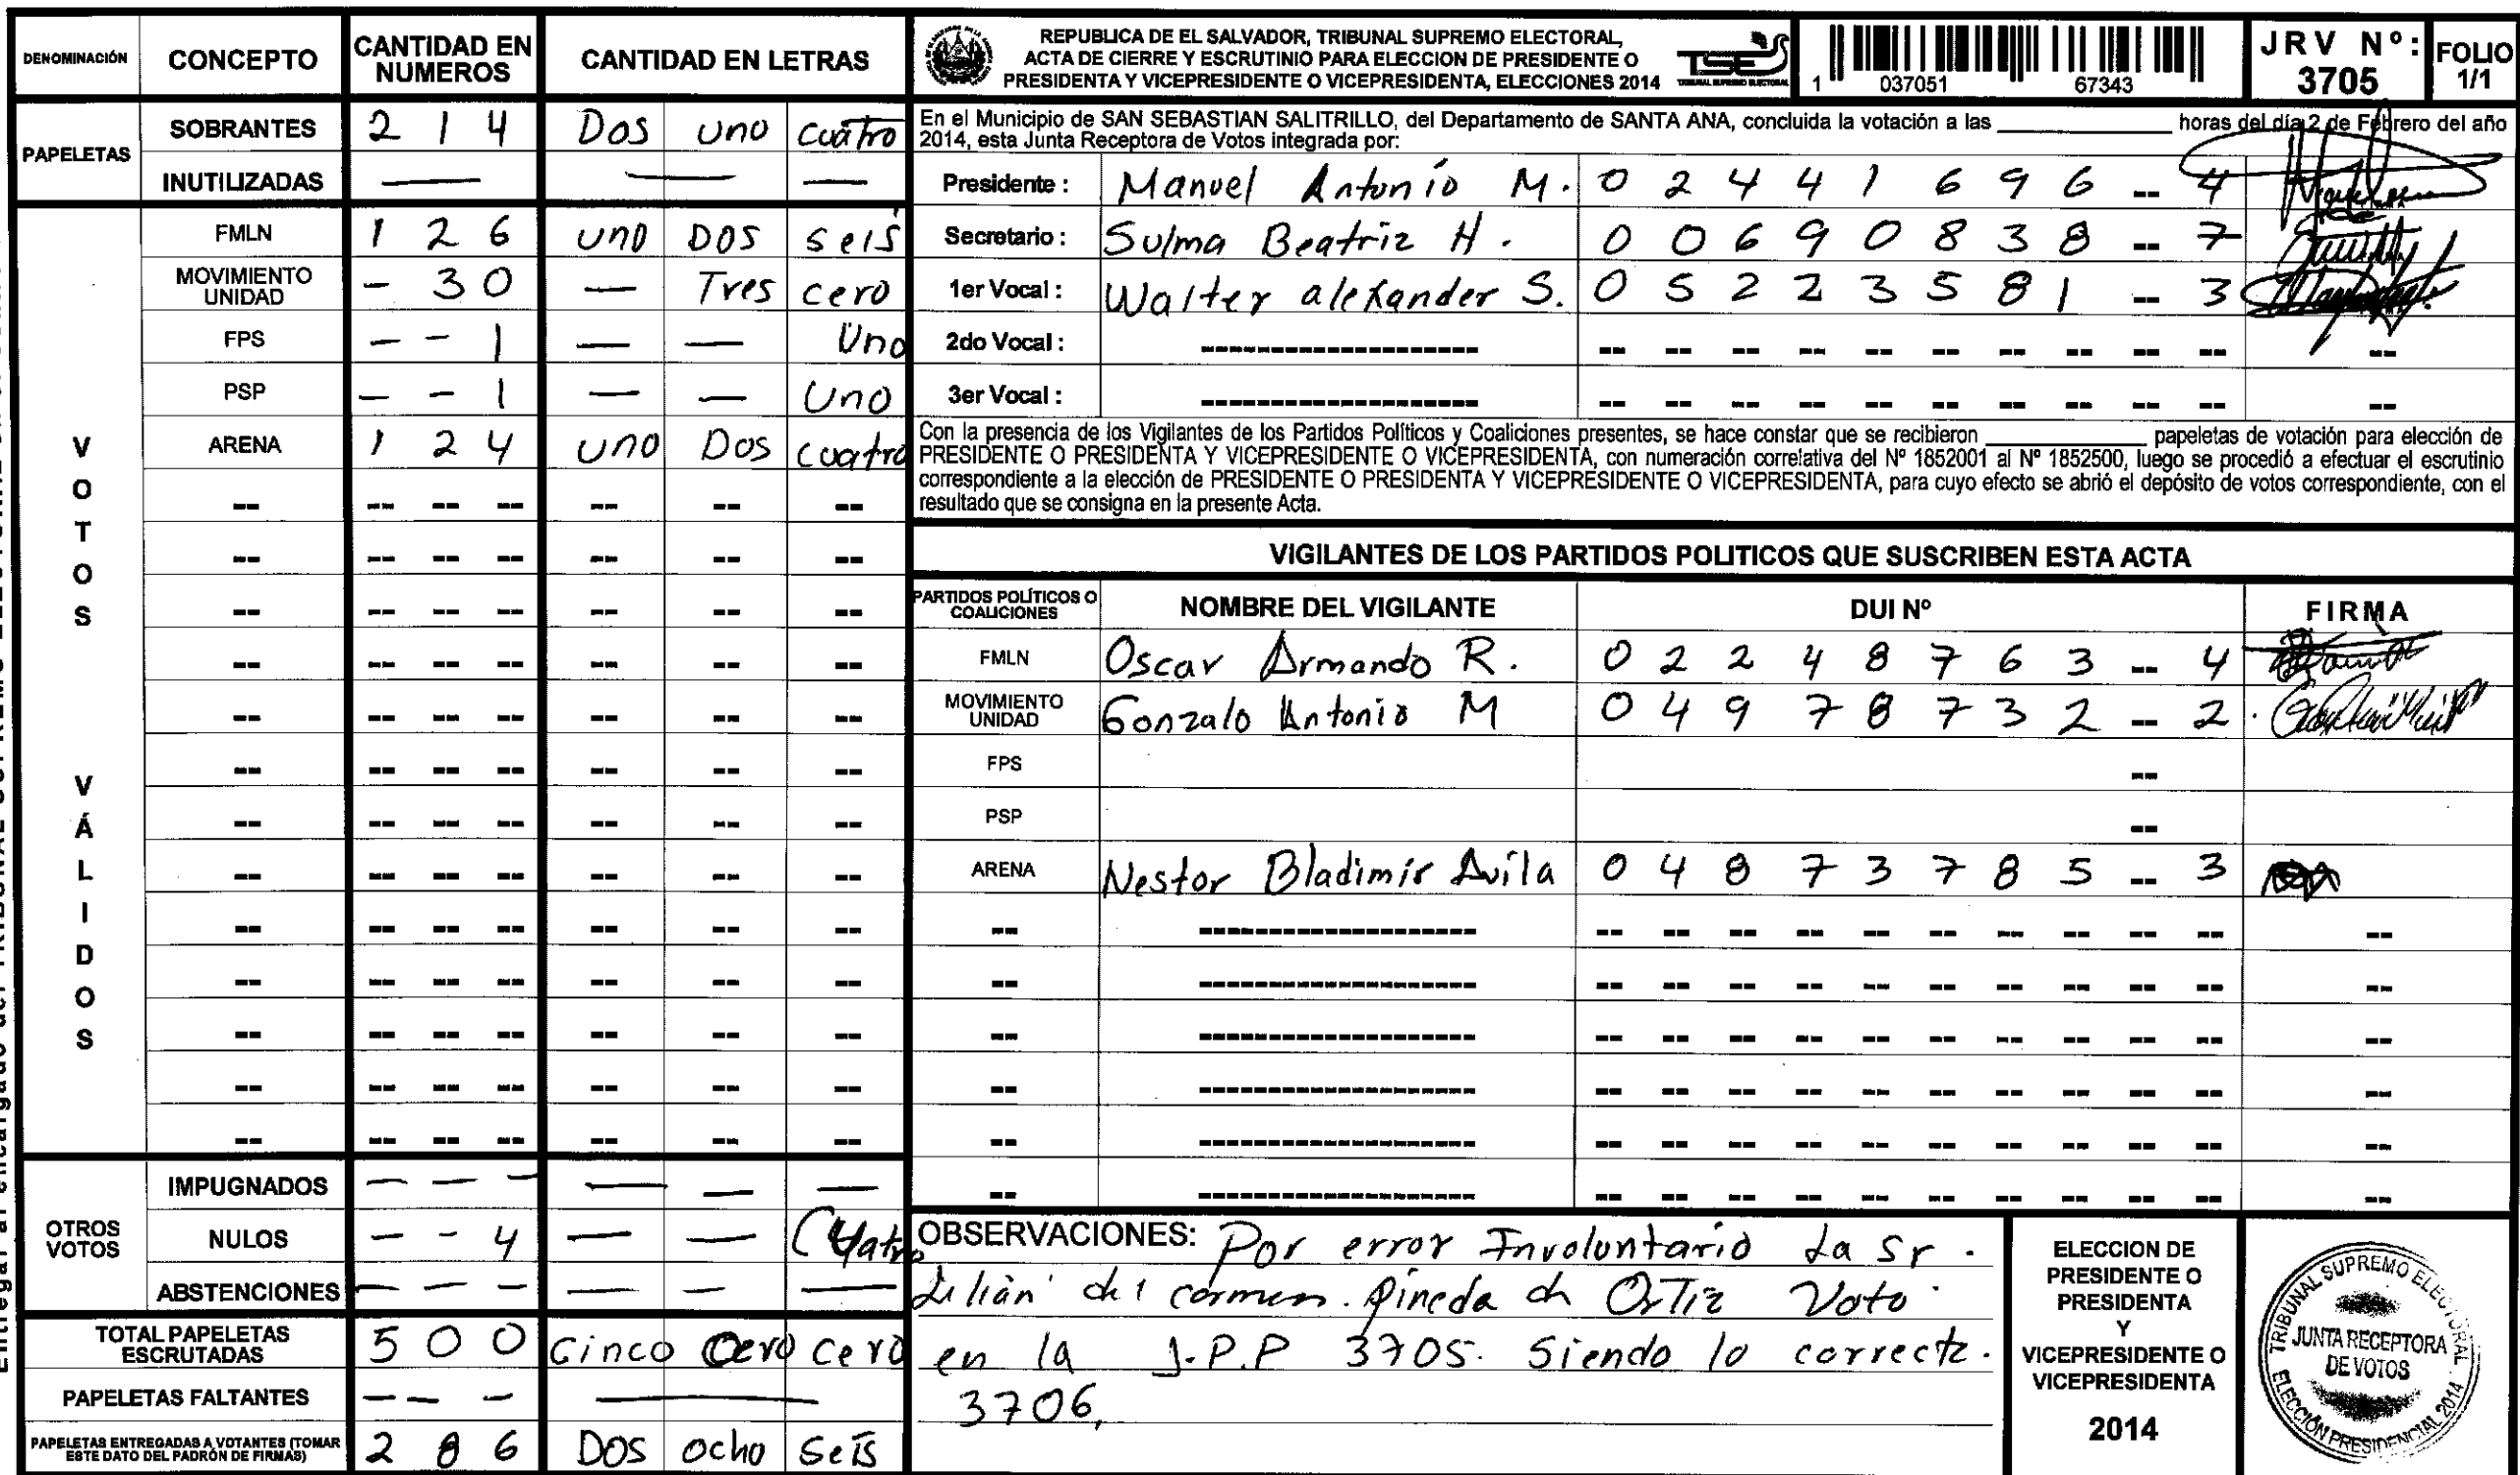 DENOMINACIÓN CONCEPTO CANTIDAD EN NUMEROS CANTIDAD EN LETRAS
PAPELETAS
SOBRANTES 2 1 4 Dos uno cuatro
INUTILIZADAS — — —
VOTOS VÁLIDOS
FMLN 1 2 6 uno DOS seis
MOVIMIENTO UNIDAD - 3 0 — Tres cero
FPS - - 1 — — Uno
PSP - - 1 — — Uno
ARENA 1 2 4 uno Dos cuatro
OTROS VOTOS
IMPUGNADOS - - - — — —
NULOS - - 4 — — Cuatro
ABSTENCIONES - - - — — —
TOTAL PAPELETAS ESCRUTADAS 5 0 0 Cinco Cero cero
PAPELETAS FALTANTES - - - —
PAPELETAS ENTREGADAS A VOTANTES (TOMAR ESTE DATO DEL PADRÓN DE FIRMAS) 2 8 6 DOS ocho Seis
REPUBLICA DE EL SALVADOR, TRIBUNAL SUPREMO ELECTORAL,
ACTA DE CIERRE Y ESCRUTINIO PARA ELECCION DE PRESIDENTE O
PRESIDENTA Y VICEPRESIDENTE O VICEPRESIDENTA, ELECCIONES 2014
TSE
TRIBUNAL SUPREMO ELECTORAL
1 037051 67343
JRV Nº: 3705
FOLIO 1/1
En el Municipio de SAN SEBASTIAN SALITRILLO, del Departamento de SANTA ANA, concluida la votación a las ____________ horas del día 2 de Febrero del año
2014, esta Junta Receptora de Votos integrada por:
Presidente : Manuel Antonio M. 0 2 4 4 1 6 9 6 -- 4
Secretario : Sulma Beatriz H. 0 0 6 9 0 8 3 8 -- 7
1er Vocal : Walter alexander S. 0 5 2 2 3 5 8 1 -- 3
2do Vocal :
3er Vocal :
Con la presencia de los Vigilantes de los Partidos Políticos y Coaliciones presentes, se hace constar que se recibieron ____________ papeletas de votación para elección de
PRESIDENTE O PRESIDENTA Y VICEPRESIDENTE O VICEPRESIDENTA, con numeración correlativa del Nº 1852001 al Nº 1852500, luego se procedió a efectuar el escrutinio
correspondiente a la elección de PRESIDENTE O PRESIDENTA Y VICEPRESIDENTE O VICEPRESIDENTA, para cuyo efecto se abrió el depósito de votos correspondiente, con el
resultado que se consigna en la presente Acta.
VIGILANTES DE LOS PARTIDOS POLITICOS QUE SUSCRIBEN ESTA ACTA
PARTIDOS POLÍTICOS O COALICIONES NOMBRE DEL VIGILANTE DUI Nº FIRMA
FMLN Oscar Armando R. 0 2 2 4 8 7 6 3 -- 4
MOVIMIENTO UNIDAD Gonzalo Antonio M 0 4 9 7 8 7 3 2 -- 2
FPS --
PSP --
ARENA Nestor Bladimir Avila 0 4 8 7 3 7 8 5 -- 3
OBSERVACIONES: Por error Involuntario La Sr.
Lilián del carmen. Pineda de OrTiz Voto
en la J.P.P 3705. Siendo lo correcto.
3706,
ELECCION DE
PRESIDENTE O
PRESIDENTA
Y
VICEPRESIDENTE O
VICEPRESIDENTA
2014
TRIBUNAL SUPREMO ELECTORAL
JUNTA RECEPTORA
DE VOTOS
ELECCIÓN PRESIDENCIAL 2014